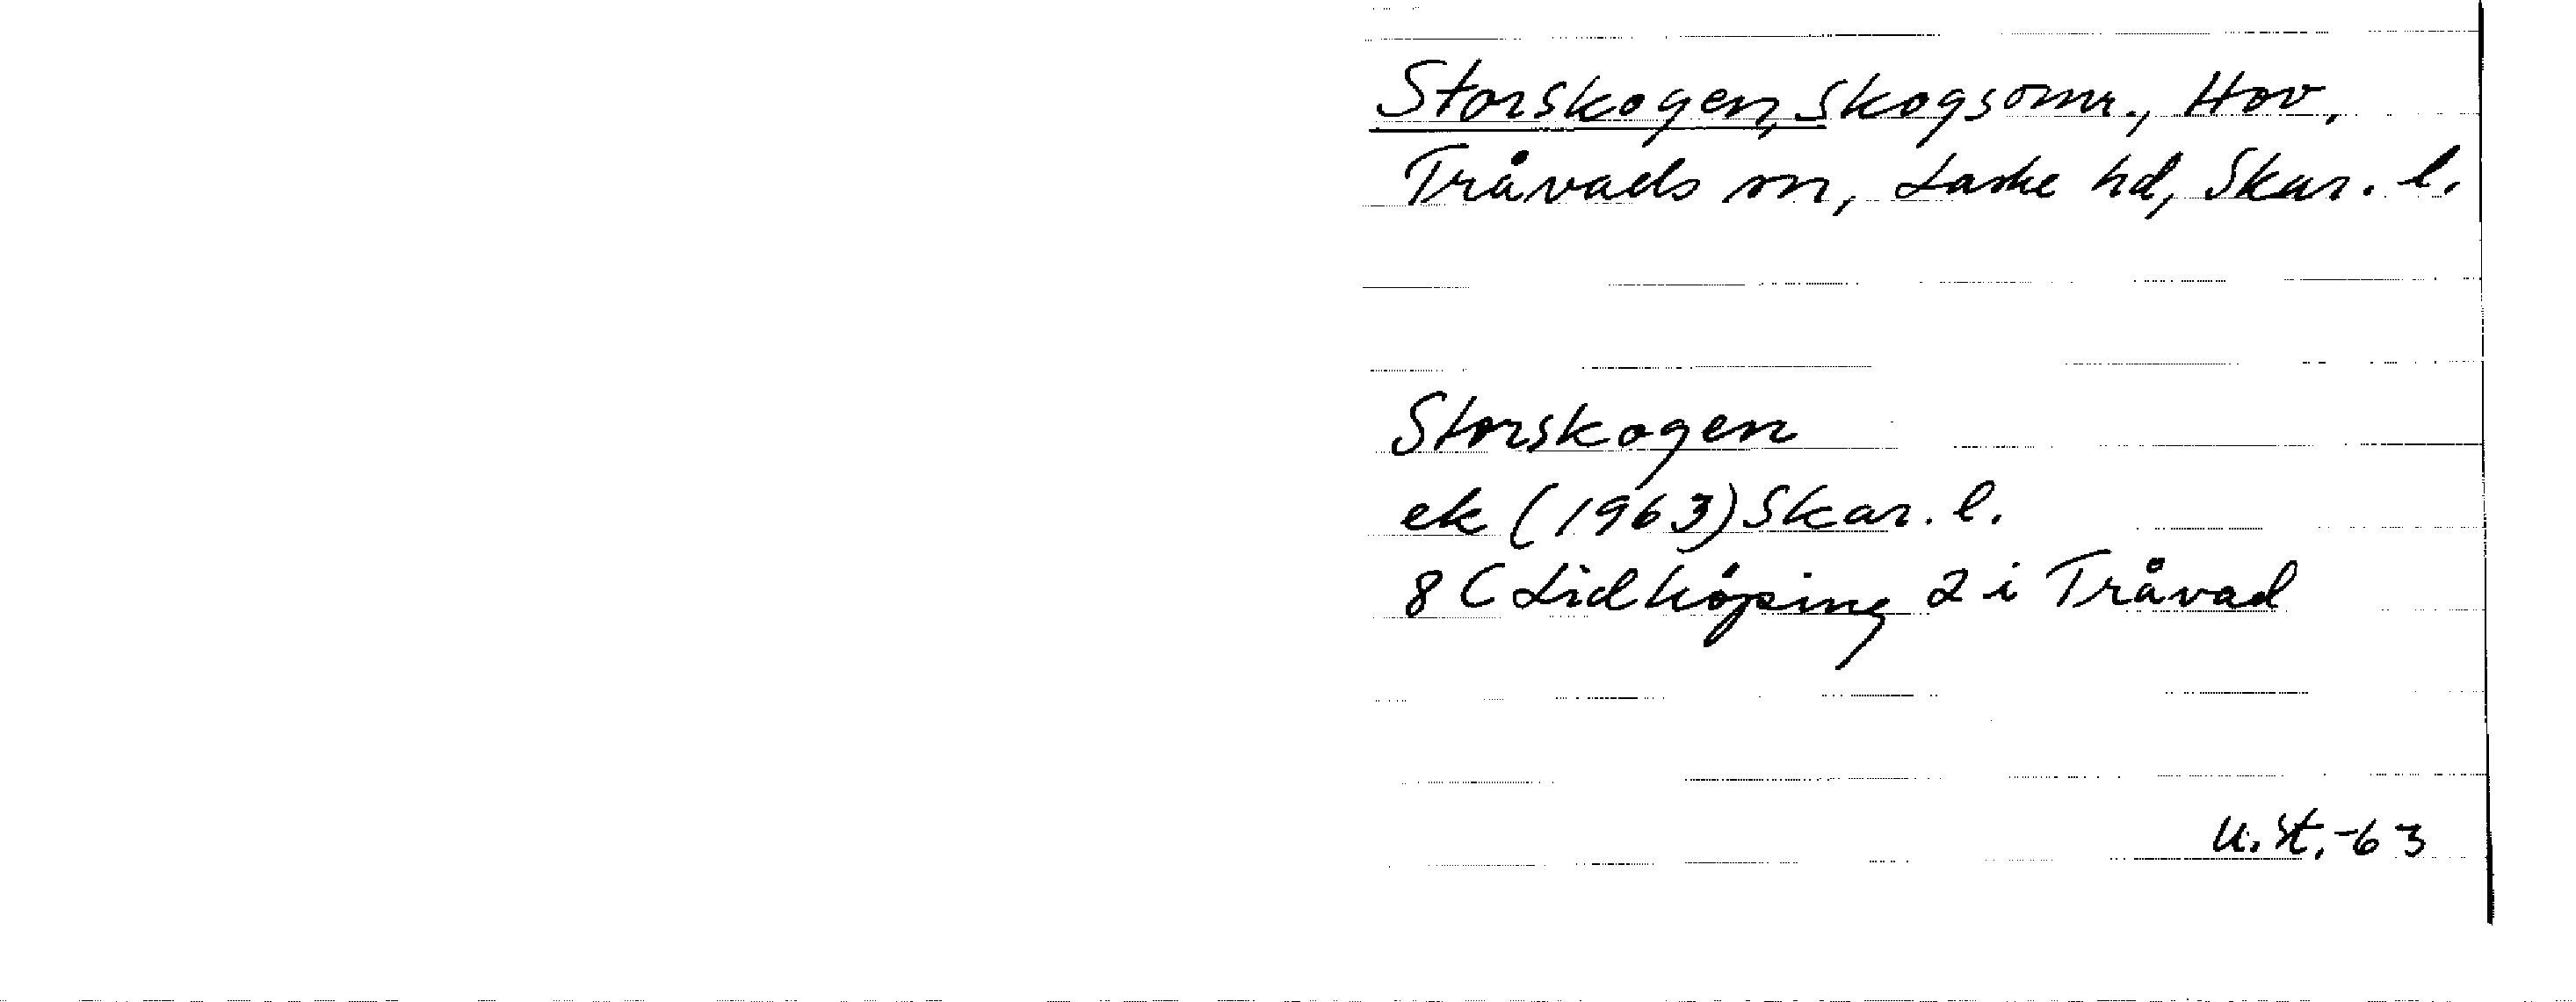 Storskogen, skogsomr., Hov,
Tråvads sn, Laske hd, Skar. l.
Storskogen
ek (1963) Skar. l.
8 C Lidköping 2 i Tråvad
U. St. -63